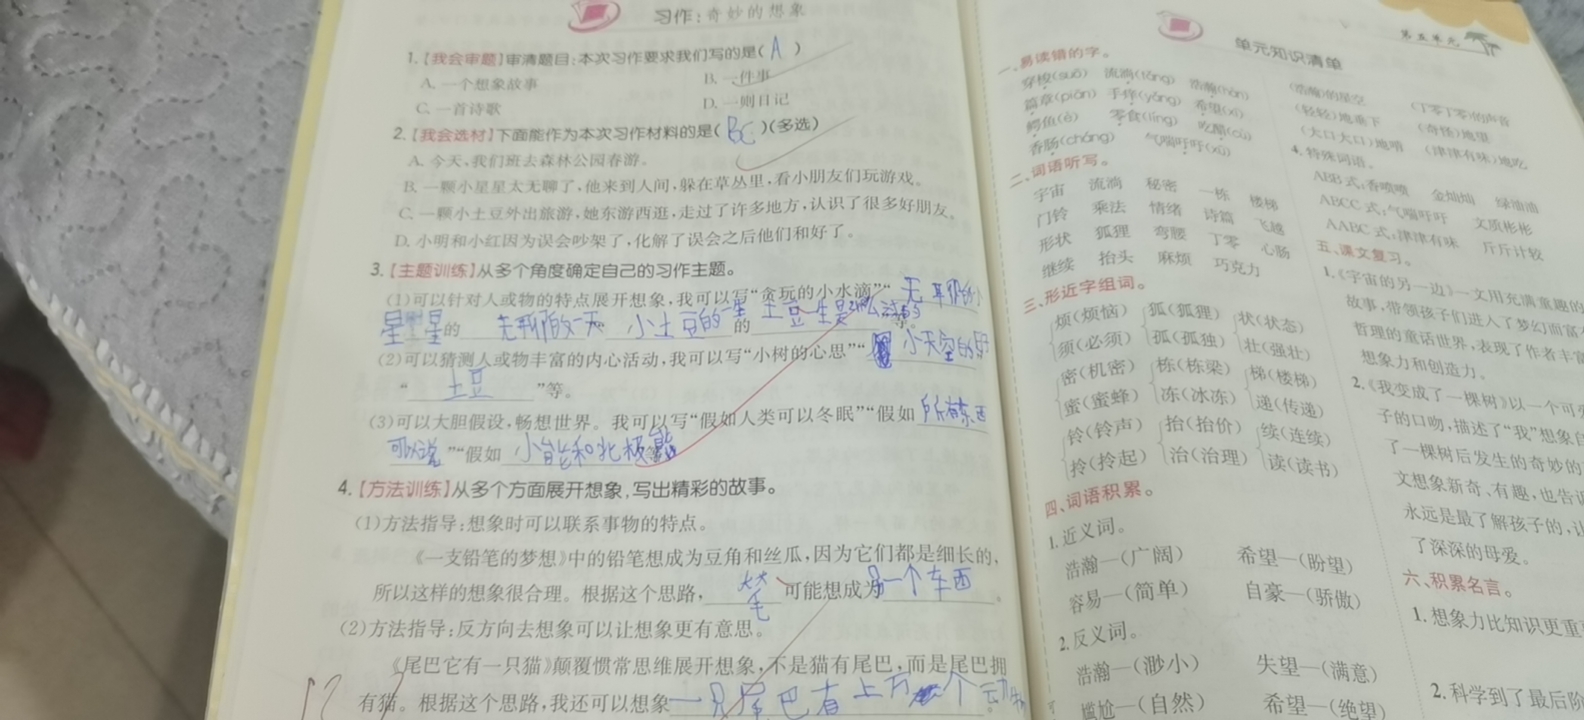 习作：奇妙的想象
1.【我会审题】审清题目：本次习作要求我们写的是( A )
A. 一个想象故事
B. 一件事
C. 一首诗歌
D. 一则日记
2.【我会选材】下面能作为本次习作材料的是( BC )(多选)
A. 今天，我们班去森林公园春游。
B. 一颗小星星太无聊了，他来到人间，躲在草丛里，看小朋友们玩游戏。
C. 一颗小土豆外出旅游，她东游西逛，走过了许多地方，认识了很多好朋友。
D. 小明和小红因为误会吵架了，化解了误会之后他们和好了。
3.【主题训练】从多个角度确定自己的习作主题。
(1)可以针对人或物的特点展开想象，我可以写“贪玩的小水滴”“
星星的 小土豆的一生 的 土豆 等。
(2)可以猜测人或物丰富的内心活动，我可以写“小树的心思”“ 小天空的
“ 土豆 ”等。
(3)可以大胆假设，畅想世界。我可以写“假如人类可以冬眠”“假如 所有东西
可以说 ”“假如 小能和北极熊
4.【方法训练】从多个方面展开想象，写出精彩的故事。
(1)方法指导：想象时可以联系事物的特点。
《一支铅笔的梦想》中的铅笔想成为豆角和丝瓜，因为它们都是细长的，
所以这样的想象很合理。根据这个思路， 笔 可能想成为 一个东西 。
(2)方法指导：反方向去想象可以让想象更有意思。
《尾巴它有一只猫》颠覆惯常思维展开想象，不是猫有尾巴，而是尾巴拥
有猫。根据这个思路，我还可以想象 一只尾巴有上万 个
第五单元
单元知识清单
一、易读错的字。
穿梭(suō) 流淌(tǎng) 浩瀚(hàn)
篇章(piān) 手痒(yǎng) 希望(xī)
鳄鱼(è) 零食(líng) 吃醋(cù)
香肠(cháng) 气喘吁吁(xū)
二、词语听写。
宇宙 流淌 秘密 一栋 楼梯
门铃 乘法 情绪 诗篇 飞越
形状 狐狸 弯腰 丁零 心肠
继续 抬头 麻烦 巧克力
三、形近字组词。
烦(烦恼) 狐(狐狸) 状(状态)
须(必须) 孤(孤独) 壮(强壮)
密(机密) 栋(栋梁) 梯(楼梯)
蜜(蜜蜂) 冻(冰冻) 递(传递)
铃(铃声) 抬(抬价) 续(连续)
拎(拎起) 治(治理) 读(读书)
四、词语积累。
1.近义词。
浩瀚—(广阔) 希望—(盼望)
容易—(简单) 自豪—(骄傲)
2.反义词。
浩瀚—(渺小) 失望—(满意)
尴尬—(自然) 希望—(绝望)
(浩瀚)的星空 (丁零丁零)的声音
(轻轻)地垂下 (奇怪)地望
(大口大口)地嚼 (津津有味)地吃
4.特殊词语。
ABB式：香喷喷 金灿灿 绿油油
ABCC式：气喘吁吁 文质彬彬
AABC式：津津有味 斤斤计较
五、课文复习。
1.《宇宙的另一边》一文用充满童趣的
故事，带领孩子们进入了梦幻而富有
哲理的童话世界，表现了作者丰富
想象力和创造力。
2.《我变成了一棵树》以一个可爱
子的口吻，描述了“我”想象自
了一棵树后发生的奇妙的
文想象新奇、有趣，也告诉
永远是最了解孩子的，让
了深深的母爱。
六、积累名言。
1.想象力比知识更重要
2.科学到了最后阶